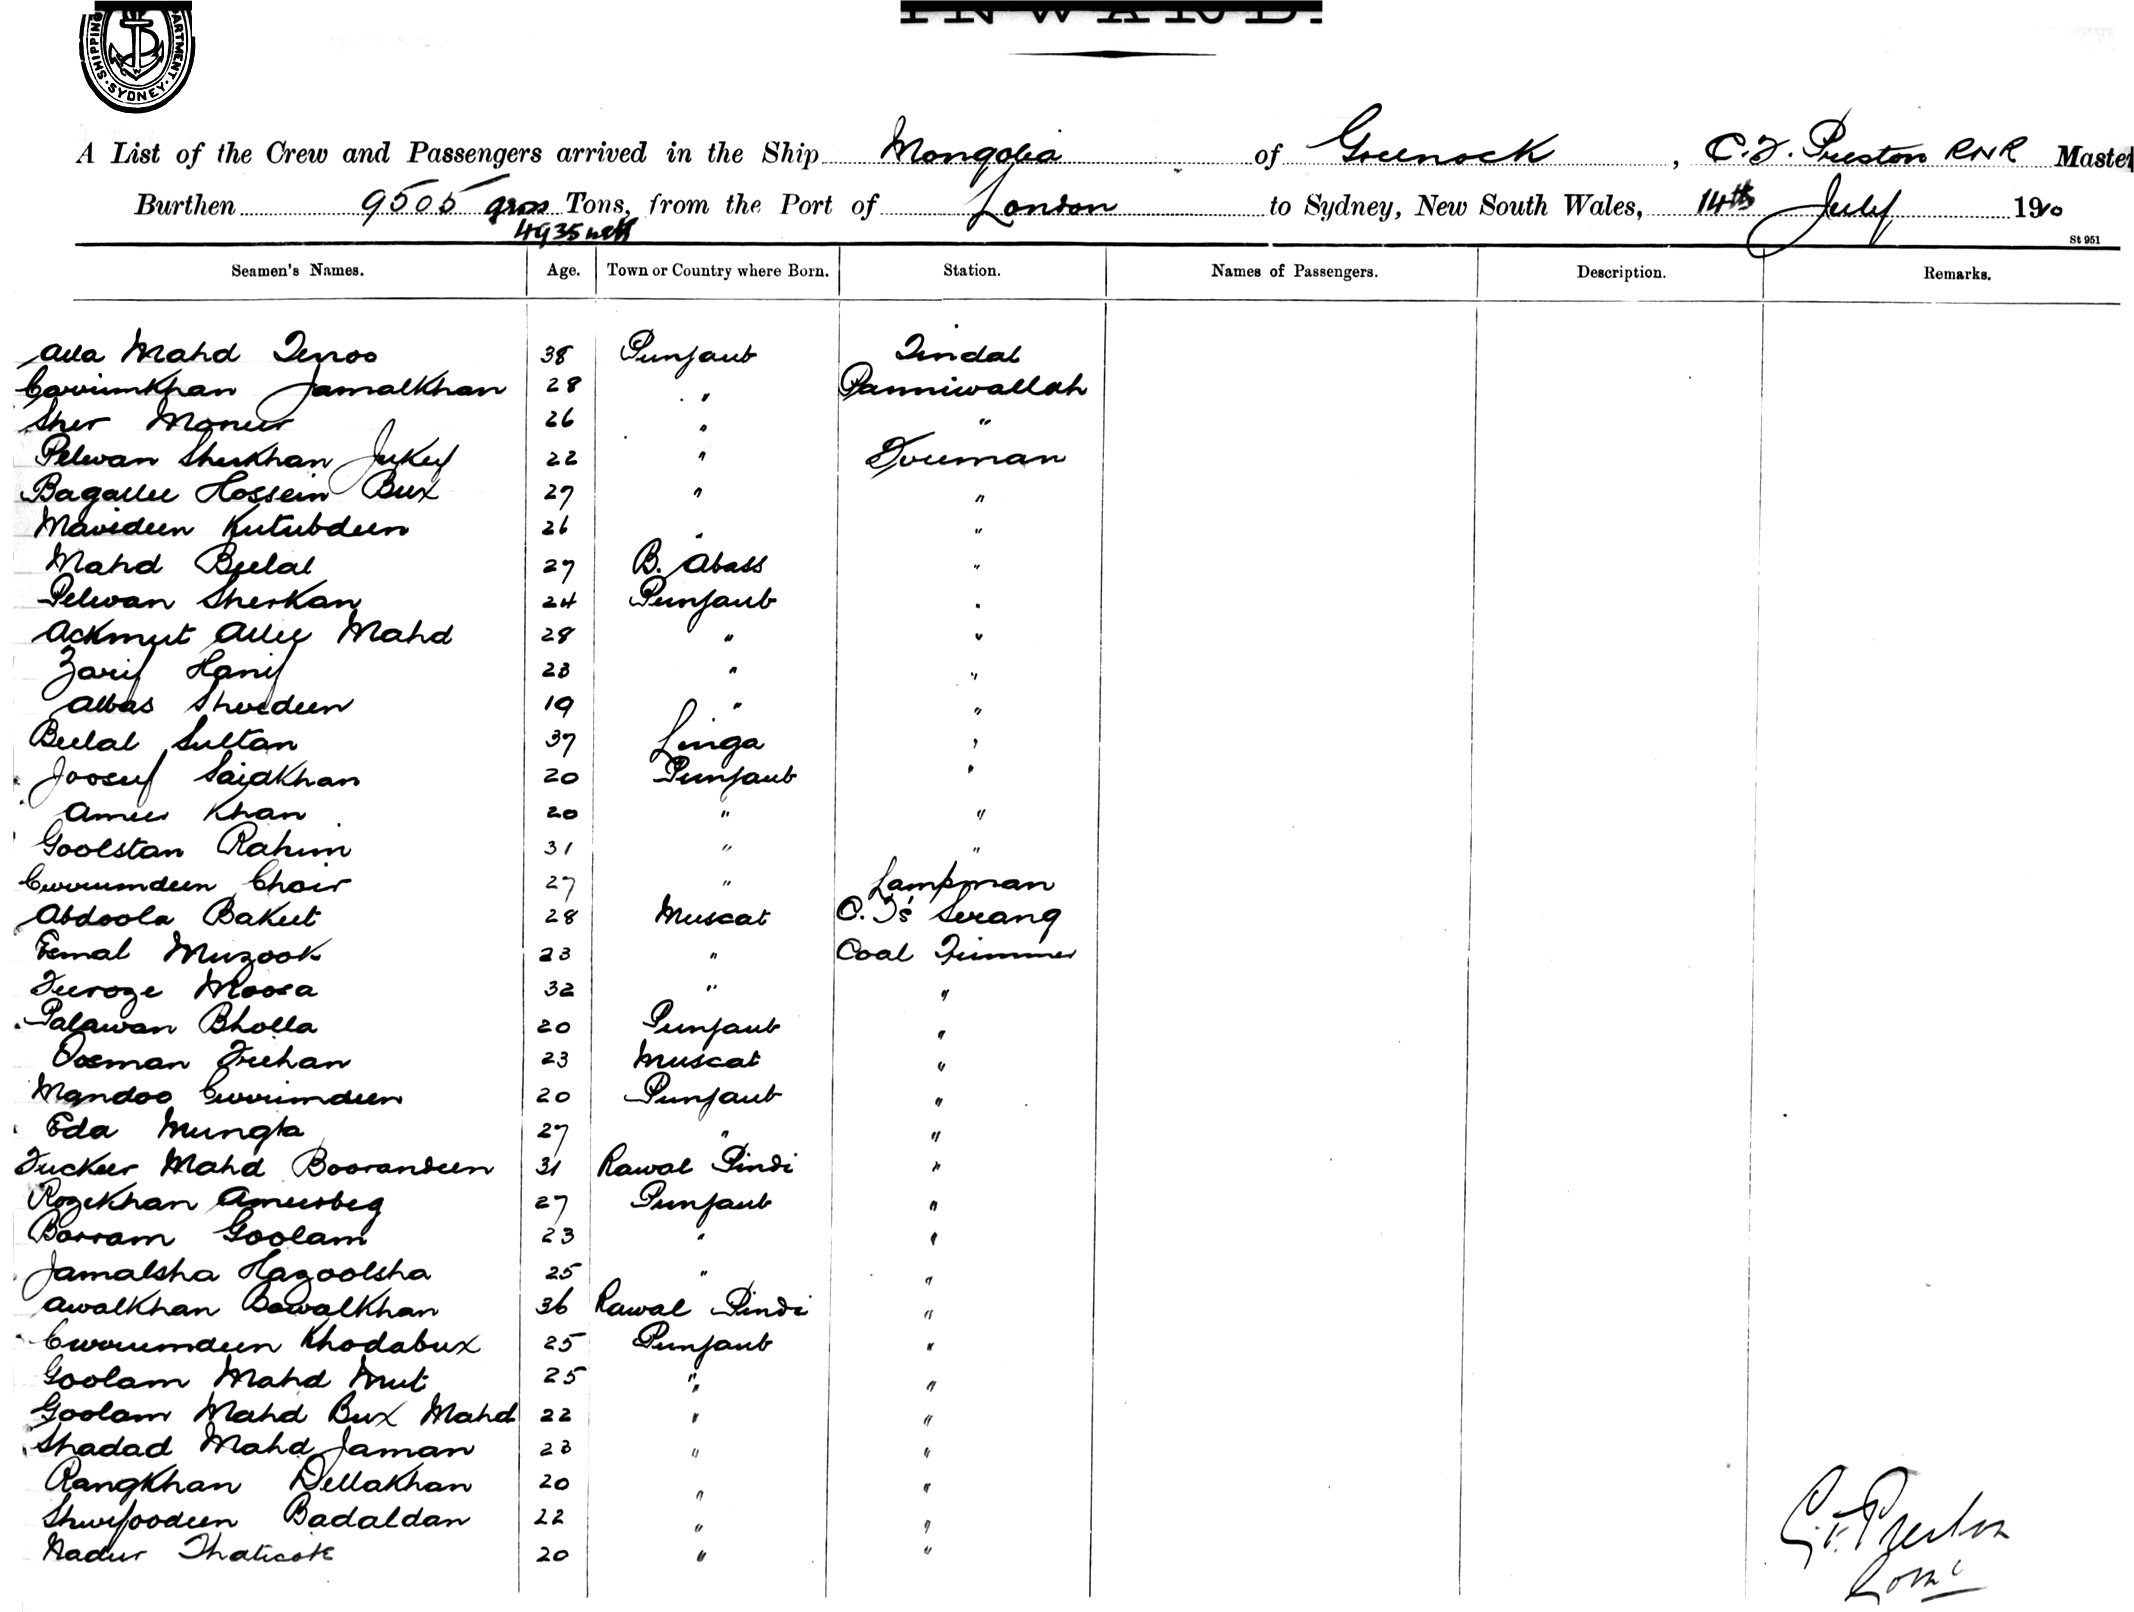 INWARD.
SHIPPING DEPARTMENT. SYDNEY.
A List of the Crew and Passengers arrived in the Ship Mongolia of Greenock, C. F. Preston RNR Master
Burthen 9505 gross Tons, from the Port of London to Sydney, New South Wales, 14th July 1910
4935 nett
St 951
Seamen's Names. Age. Town or Country where Born. Station. Names of Passengers. Description. Remarks.
Alla Mahd 38 Punjaub Tindal
Carrimkhan Jamalkhan 28 " Panniwallah
Sher 26 " "
Pelwan Sherkhan 22 " Fireman
Hossein Bux 27 " "
Kutubdeen 26 " "
Mahd Beelal 27 B. Abass "
Pelwan Sherkan 24 Punjaub "
Ackmut Allee Mahd 28 " "
Zarif Hanif 23 " "
Abbas 19 " "
Beelal Sultan 37 Linga "
Joosuf Saidkhan 20 Punjaub "
Ameer Khan 20 " "
Goolstan Rahim 31 " "
Currumdeen 27 " Lampman
Abdoola Bakeet 28 Muscat C. T's Serang
Muzook 23 " Coal Trimmer
Feeroze Moosa 32 " "
Palawan Bholla 20 Punjaub "
Oosman 23 Muscat "
Mandoo Currimdeen 20 Punjaub "
Eda Mungta 27 " "
Fuckeer Mahd Boorandeen 31 Rawal Pindi "
Rozekhan Ameerbeg 27 Punjaub "
Barram Goolam 23 " "
Jamalsha Hazoolsha 25 " "
Awalkhan Bawalkhan 36 Rawal Pindi "
Currumdeen Khodabux 25 Punjaub "
Goolam Mahd Mut 25 " "
Goolam Mahd Bux Mahd 22 " "
Shadad Mahd Jaman 23 " "
Rangkhan Dellakhan 20 " "
Badaldan 22 " "
20 " "
C. F. Preston